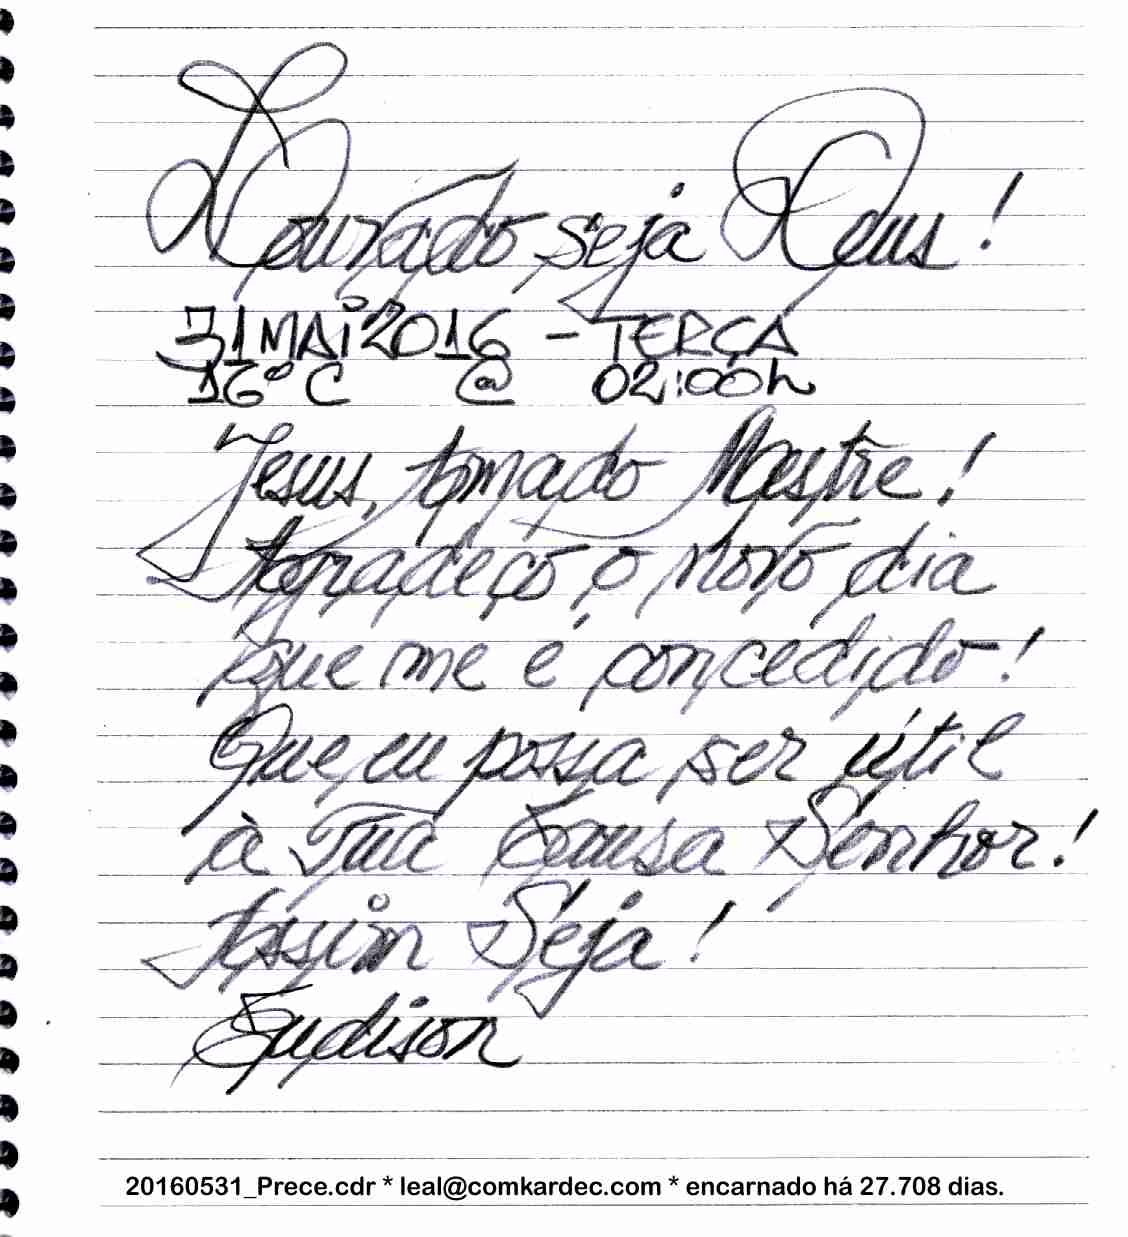 Louvado seja Deus!
31MAI2016 - TERÇA
16°C @ 02:00h
Jesus, amado Mestre!
Agradeço o novo dia
que me é concedido!
Que eu possa ser útil
à Tua Causa Senhor!
Assim Seja!
Eudison
20160531_Prece.cdr * leal@comkardec.com * encarnado há 27.708 dias.